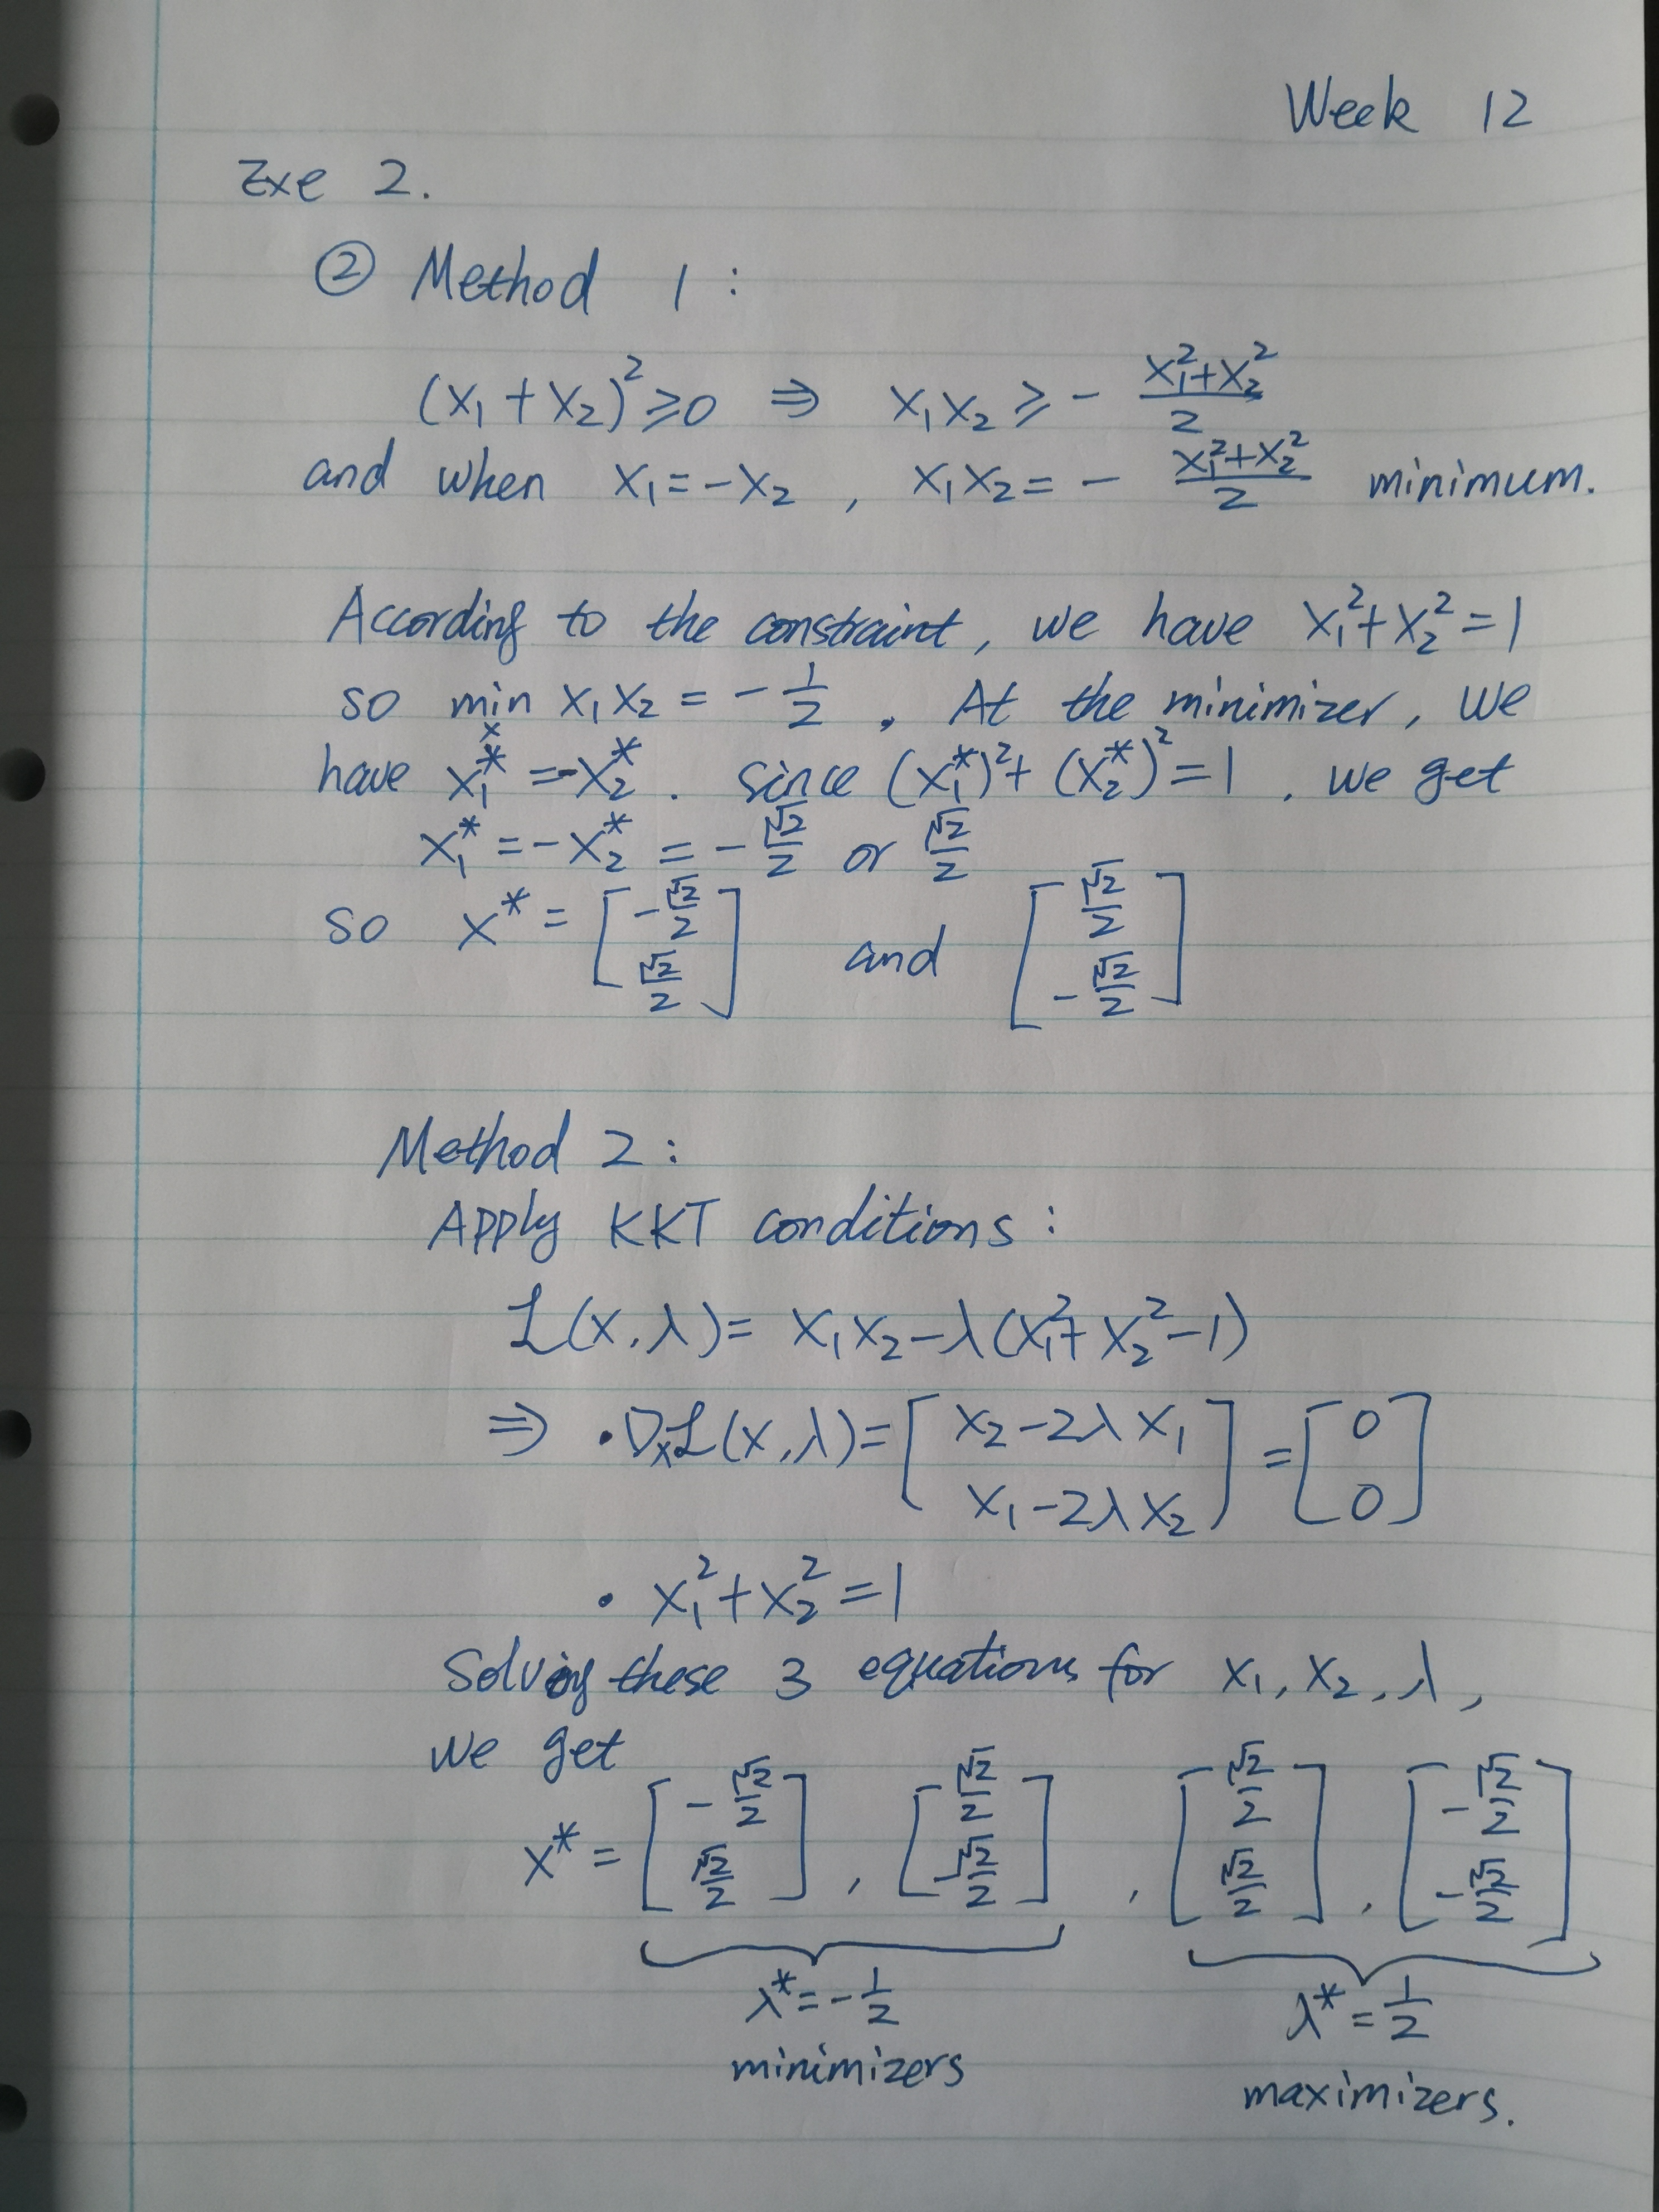 Week 12
Exe 2.
② Method 1 :
(x₁ + x₂)² ⩾ 0 ⇒ x₁x₂ ⩾ - (x₁²+x₂²)/2
and when x₁ = -x₂ , x₁x₂ = - (x₁²+x₂²)/2 minimum.
According to the constraint, we have x₁²+x₂² = 1
so min_x x₁x₂ = - 1/2 . At the minimizer, we
have x₁* = -x₂* . Since (x₁*)² + (x₂*)² = 1 , we get
x₁* = -x₂* = - √2/2 or √2/2
so x* = [-√2/2 ; √2/2] and [√2/2 ; -√2/2]
Method 2 :
Apply KKT conditions :
ℒ(x, λ) = x₁x₂ - λ(x₁² + x₂² - 1)
⇒ • ∇ₓℒ(x, λ) = [x₂ - 2λx₁ ; x₁ - 2λx₂] = [0 ; 0]
• x₁² + x₂² = 1
Solving these 3 equations for x₁, x₂, λ,
we get
x* = [-√2/2 ; √2/2] , [√2/2 ; -√2/2] , [√2/2 ; √2/2] , [-√2/2 ; -√2/2]
λ* = - 1/2 λ* = 1/2
minimizers maximizers.